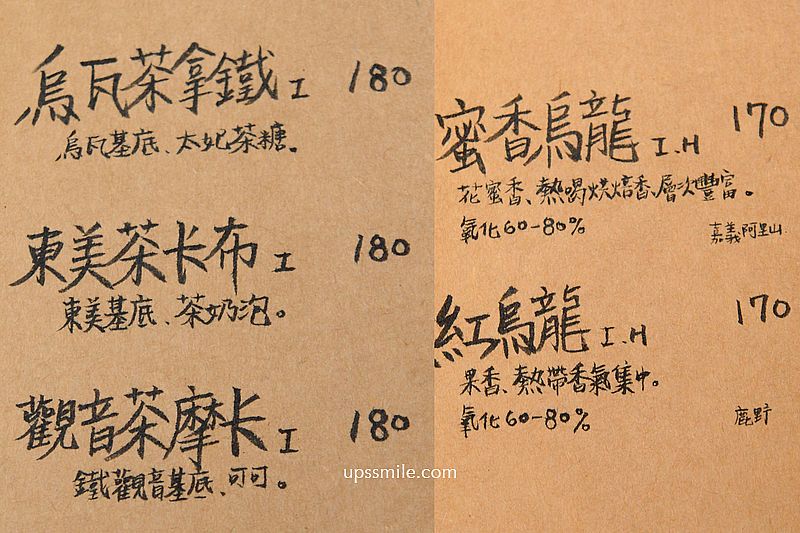 烏瓦茶拿鐵 I 180
烏瓦基底、太妃茶糖。
東美茶卡布 I 180
東美基底、茶奶泡。
觀音茶摩卡 I 180
鐵觀音基底、可可。
蜜香烏龍 I.H 170
花蜜香、熱喝烘焙香、層次豐富。
氧化60-80%
嘉義、阿里山
紅烏龍 I.H 170
果香、熱帶香氣集中。
氧化60-80%
鹿野
upssmile.com